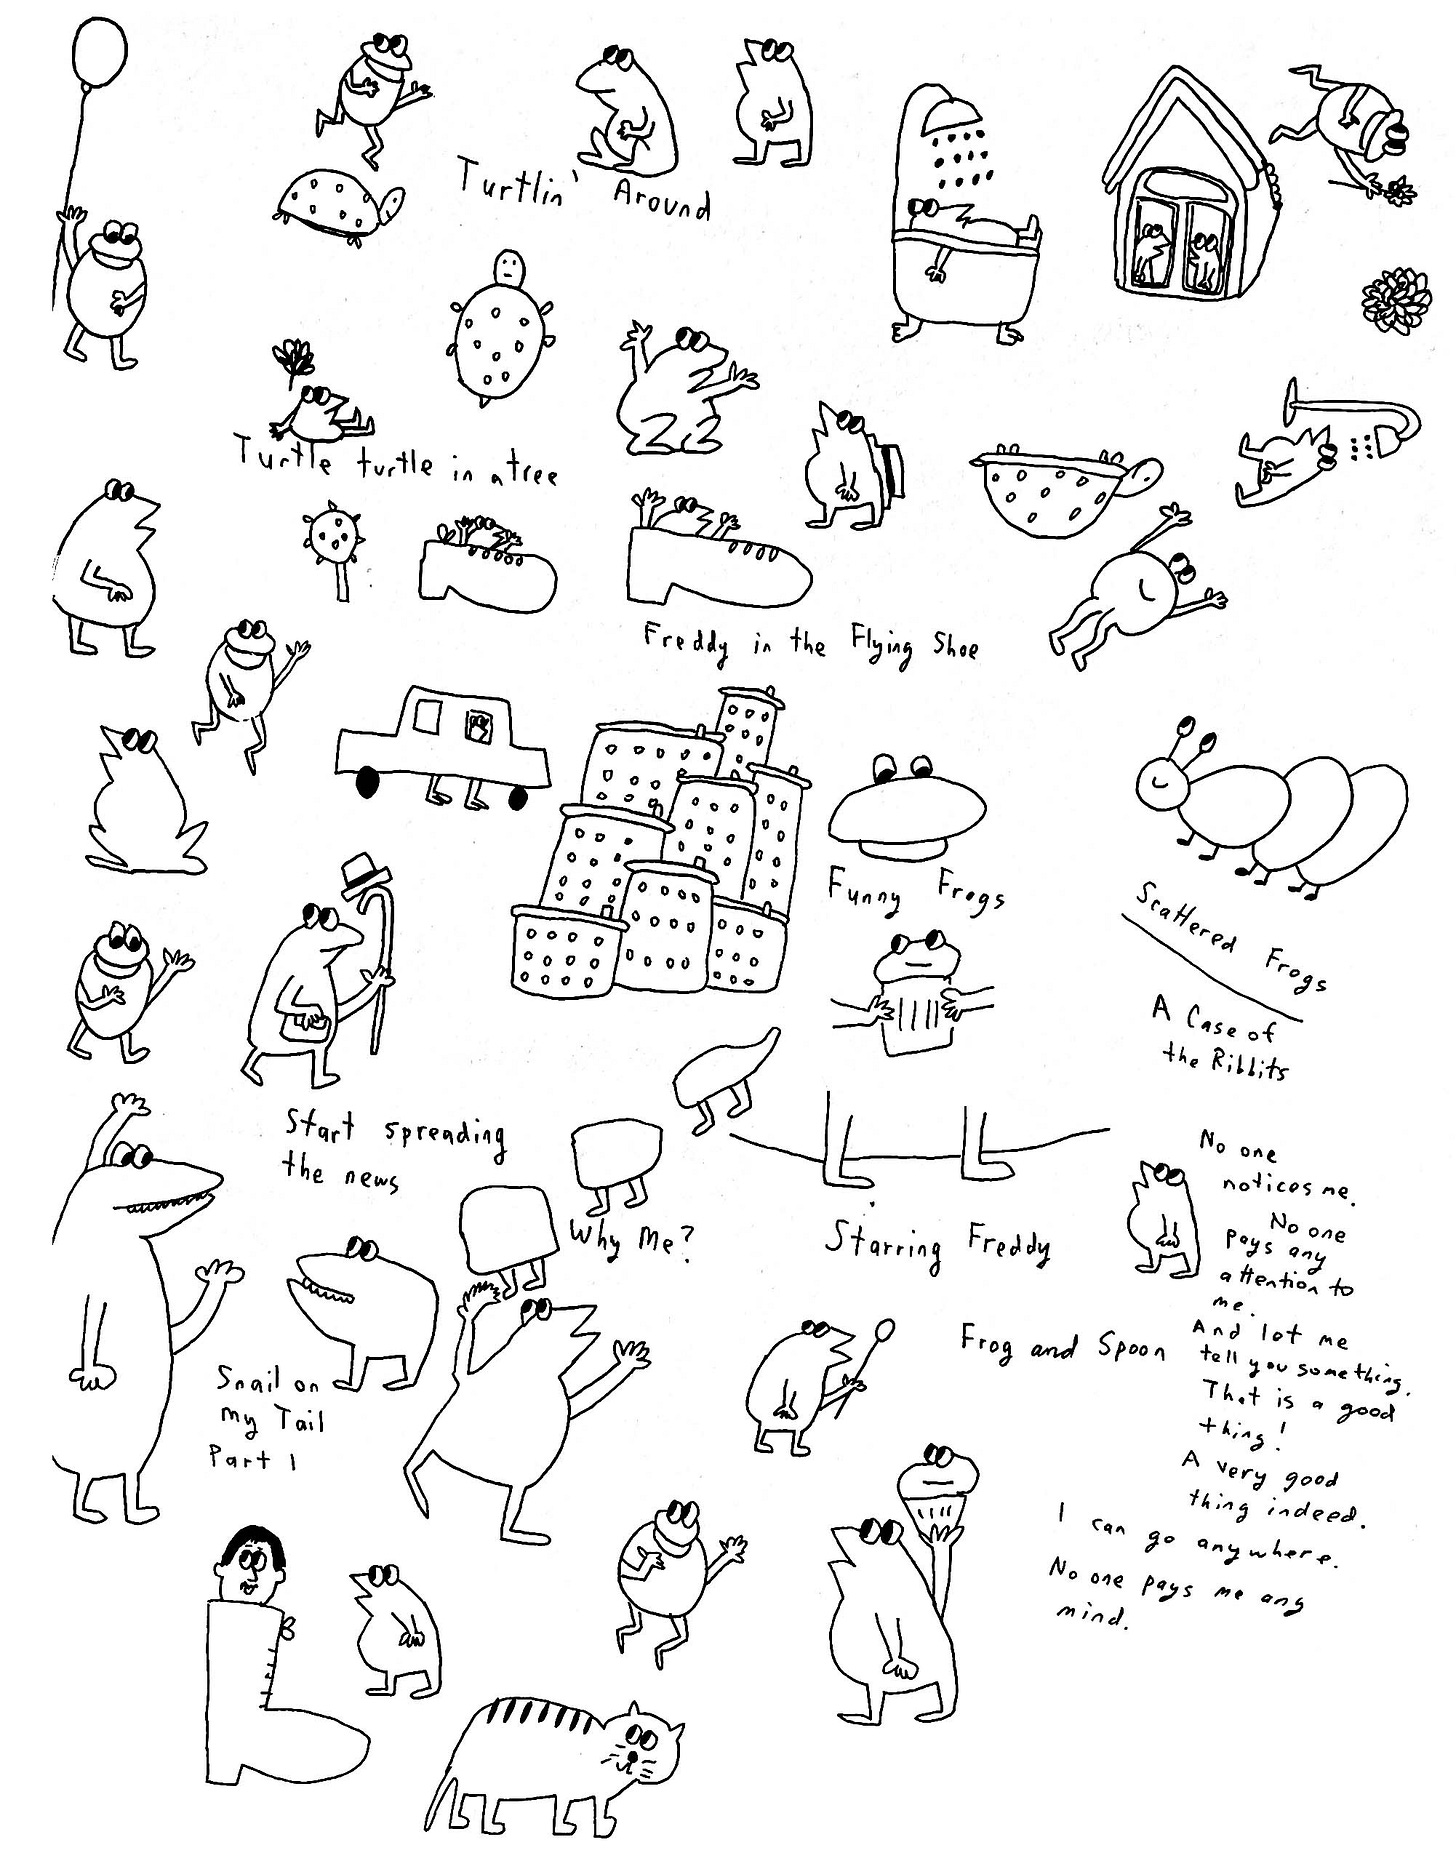 Turtlin' Around
Turtle turtle in a tree
Freddy in the Flying Shoe
Funny Frogs
Scattered Frogs
A Case of
the Ribbits
Start spreading
the news
Why Me?
Starring Freddy
No one
notices me.
No one
pays any
attention to
me.
And let me
tell you something.
That is a good
thing!
A very good
thing indeed.
I can go anywhere.
No one pays me any
mind.
Frog and Spoon
Snail on
my Tail
Part 1